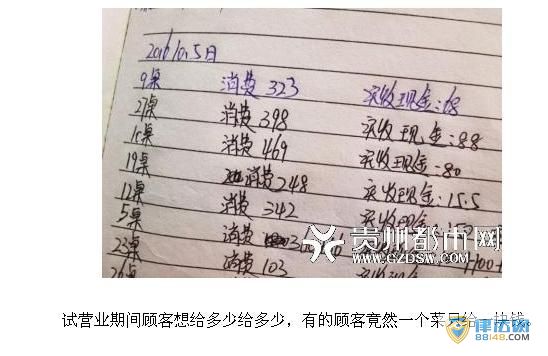 2016.10.5日
9桌 消费 323 实收现金:68
21桌 消费 398 实收现金:88
消费 469 实收现金:80
19桌 消费 248 实收现金:15.5
12桌 消费 342 实收现金:150
5桌 消费
23桌 消费 103
贵州都市网
试营业期间顾客想给多少给多少，有的顾客竟然一个菜只给一块钱。
律法网
88148.COM